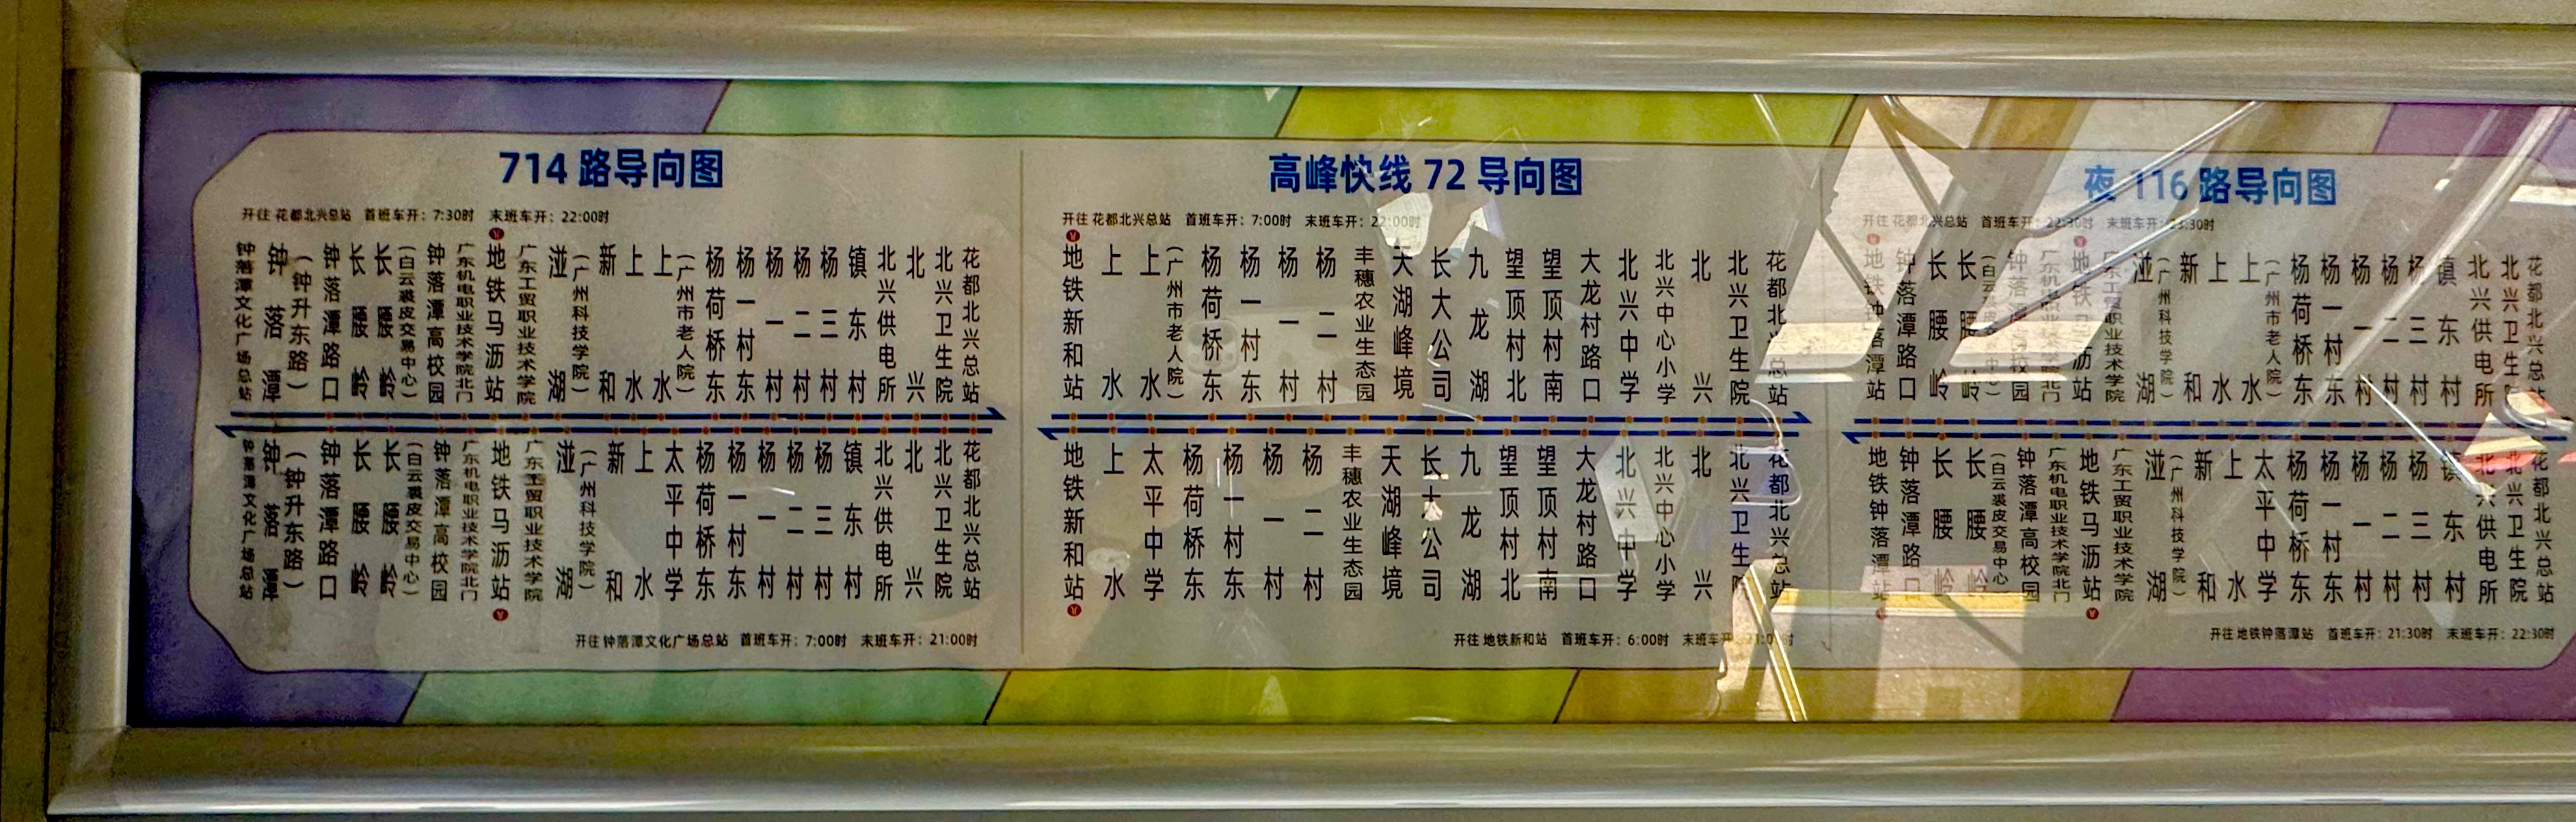 714 路导向图
开往 花都北兴总站 首班车开：7:30时 末班车开：22:00时
钟落潭文化广场总站
钟落潭
（钟升东路）
钟落潭路口
长腰岭
长腰岭
（白云裘皮交易中心）
钟落潭高校园
广东机电职业技术学院北门
地铁马沥站
广东工贸职业技术学院
湴湖
（广州科技学院）
新和
上水
上水
（广州市老人院）
杨荷桥东
杨一村东
杨一村
杨二村
杨三村
镇东村
北兴供电所
北兴
北兴卫生院
花都北兴总站
钟落潭文化广场总站
钟落潭
（钟升东路）
钟落潭路口
长腰岭
长腰岭
（白云裘皮交易中心）
钟落潭高校园
广东机电职业技术学院北门
地铁马沥站
广东工贸职业技术学院
湴湖
（广州科技学院）
新和
上水
太平中学
杨荷桥东
杨一村东
杨一村
杨二村
杨三村
镇东村
北兴供电所
北兴
北兴卫生院
花都北兴总站
开往 钟落潭文化广场总站 首班车开：7:00时 末班车开：21:00时
高峰快线 72 导向图
开往 花都北兴总站 首班车开：7:00时 末班车开：22:00时
地铁新和站
上水
上水
（广州市老人院）
杨荷桥东
杨一村东
杨一村
杨二村
丰穗农业生态园
天湖峰境
长大公司
九龙湖
望顶村北
望顶村南
大龙村路口
北兴中学
北兴中心小学
北兴
北兴卫生院
花都北兴总站
地铁新和站
上水
太平中学
杨荷桥东
杨一村东
杨一村
杨二村
丰穗农业生态园
天湖峰境
长大公司
九龙湖
望顶村北
望顶村南
大龙村路口
北兴中学
北兴中心小学
北兴
北兴卫生院
花都北兴总站
开往 地铁新和站 首班车开：6:00时 末班车开：21:00时
夜 116 路导向图
开往 花都北兴总站 首班车开：22:30时 末班车开：23:30时
地铁钟落潭站
钟落潭路口
长腰岭
长腰岭
（白云裘皮交易中心）
钟落潭高校园
广东机电职业技术学院北门
地铁马沥站
广东工贸职业技术学院
湴湖
（广州科技学院）
新和
上水
上水
（广州市老人院）
杨荷桥东
杨一村东
杨一村
杨二村
杨三村
镇东村
北兴供电所
北兴卫生院
花都北兴总站
地铁钟落潭站
钟落潭路口
长腰岭
长腰岭
（白云裘皮交易中心）
钟落潭高校园
广东机电职业技术学院北门
地铁马沥站
广东工贸职业技术学院
湴湖
（广州科技学院）
新和
上水
太平中学
杨荷桥东
杨一村东
杨一村
杨二村
杨三村
镇东村
北兴供电所
北兴卫生院
花都北兴总站
开往 地铁钟落潭站 首班车开：21:30时 末班车开：22:30时